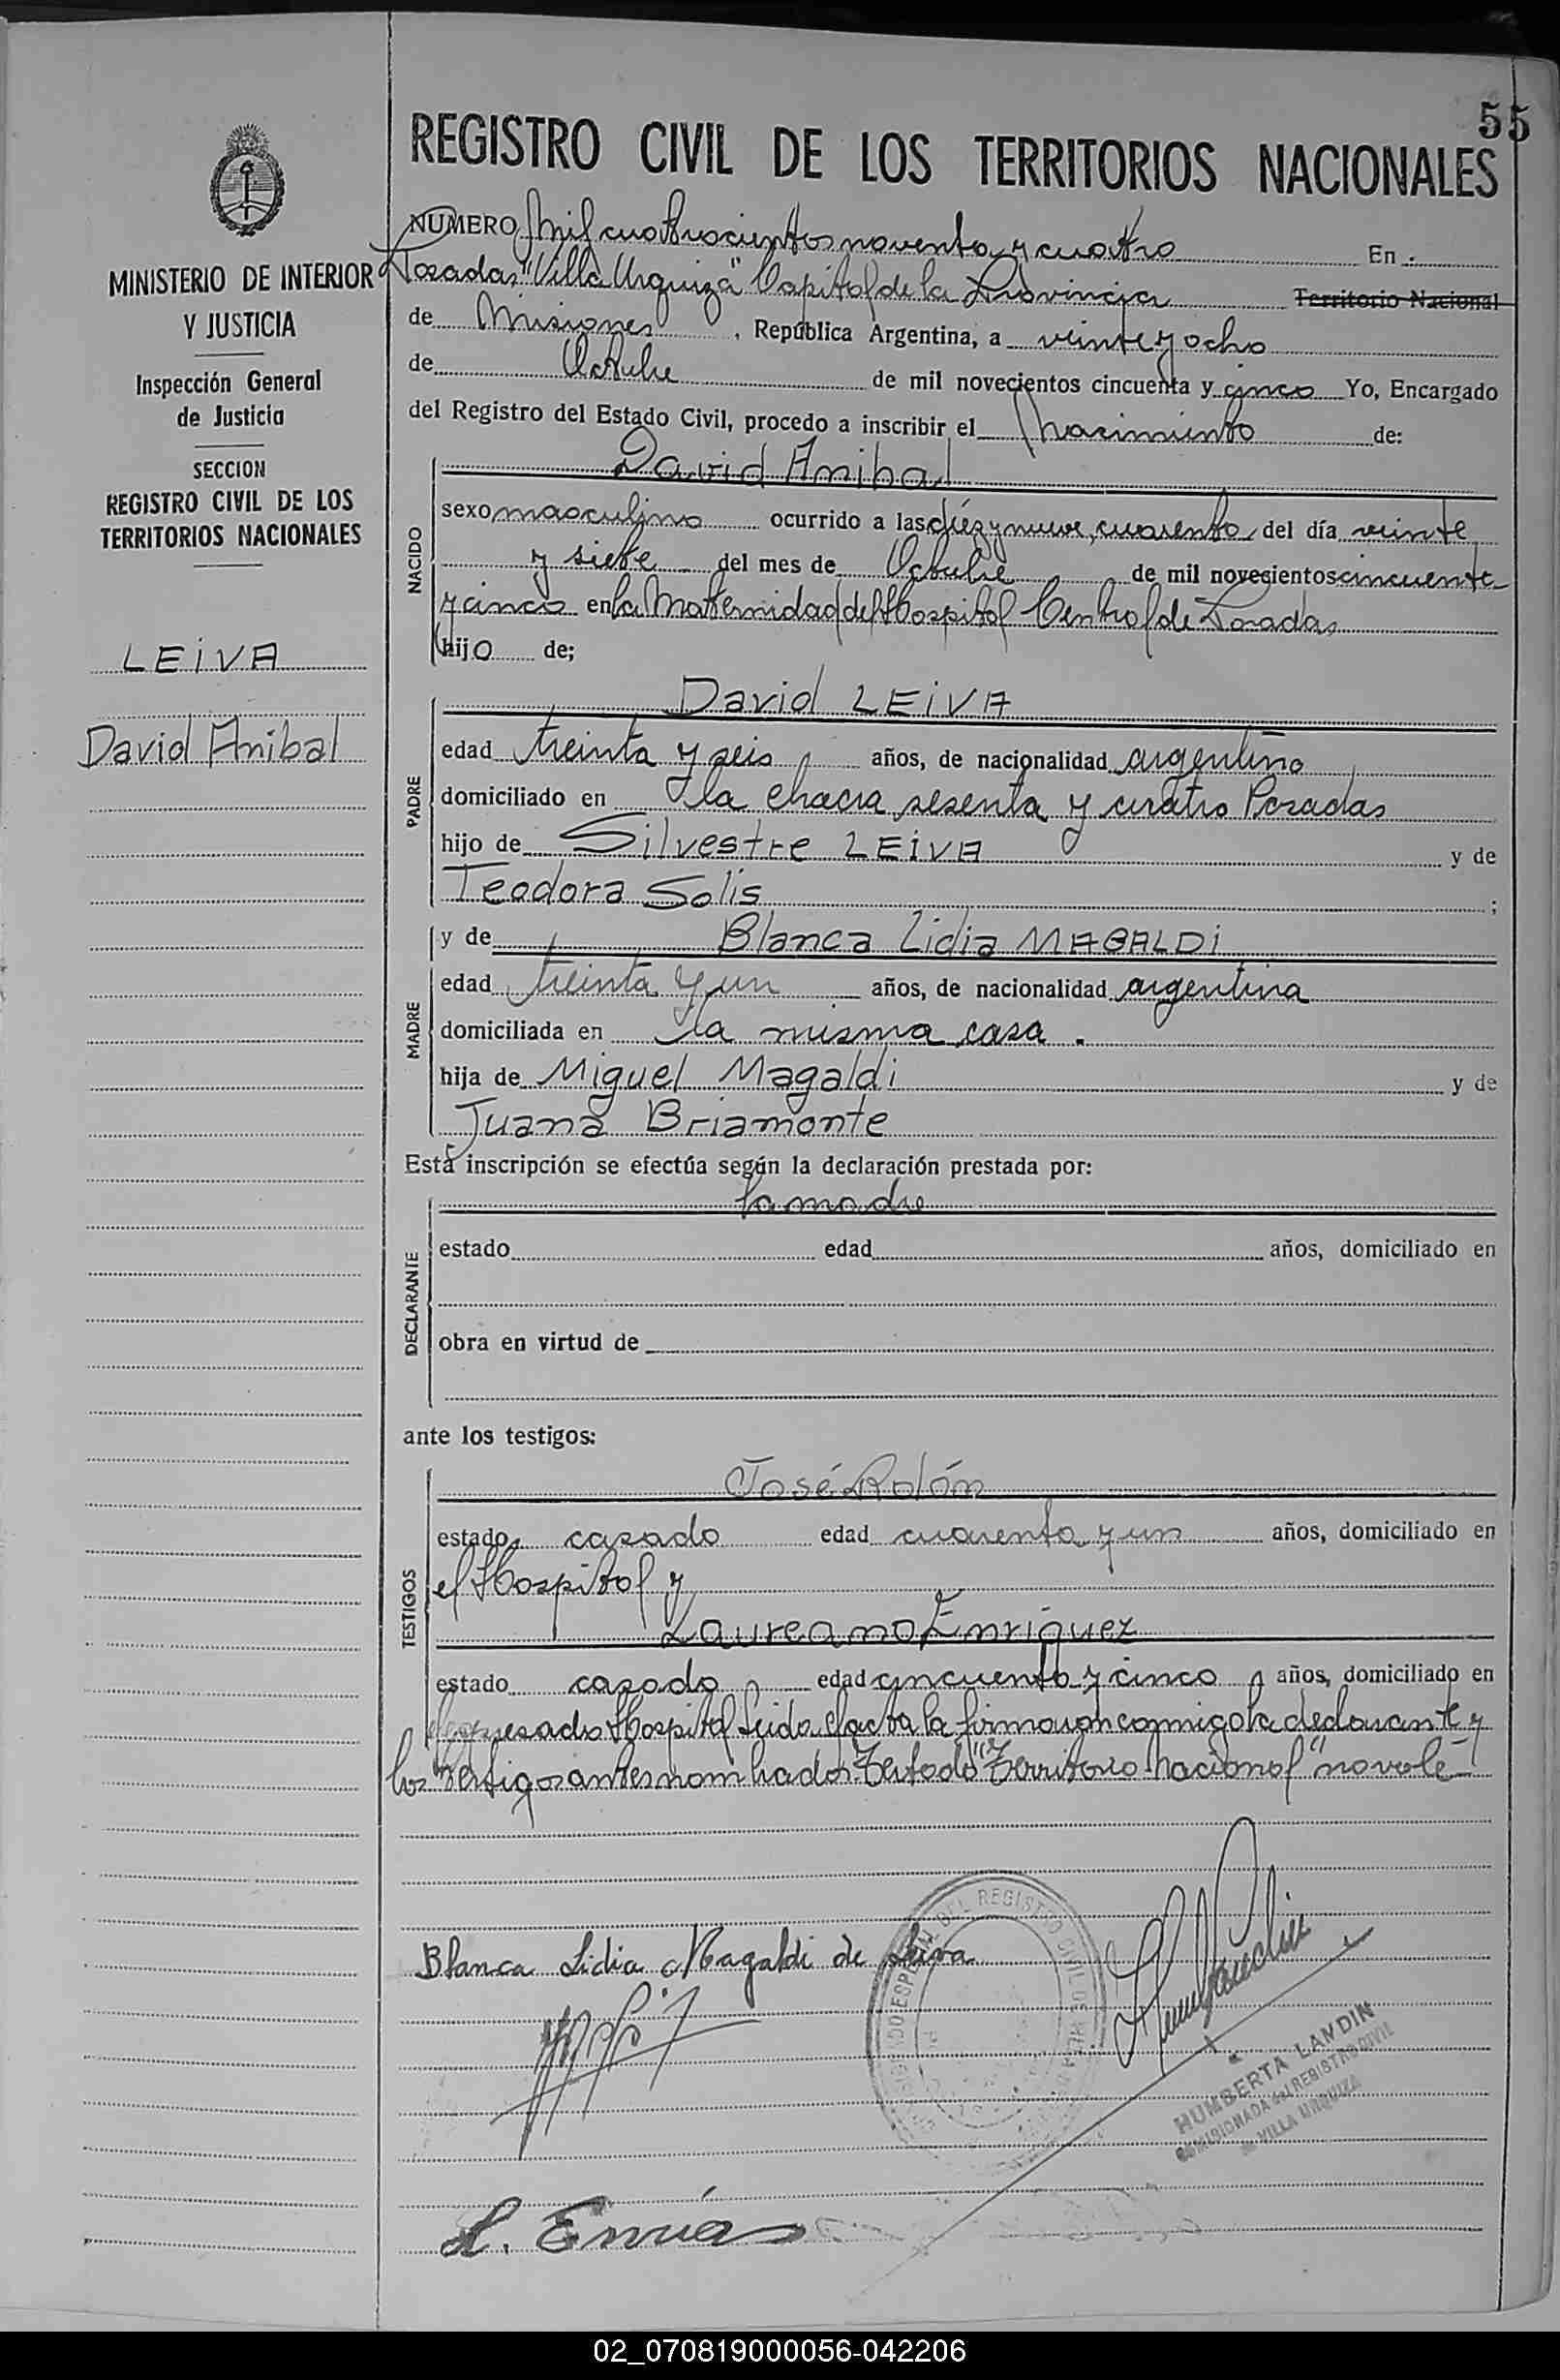 55
REGISTRO CIVIL DE LOS TERRITORIOS NACIONALES
MINISTERIO DE INTERIOR
Y JUSTICIA
Inspección General
de Justicia
SECCION
REGISTRO CIVIL DE LOS
TERRITORIOS NACIONALES
LEIVA
David Anibal
NUMERO Mil cuatrocientos noventa y cuatro En
Posadas "Villa Urquiza" Capital de la Provincia Territorio Nacional
de Misiones, República Argentina, a veinte y ocho
de Octubre de mil novecientos cincuenta y cinco Yo, Encargado
del Registro del Estado Civil, procedo a inscribir el Nacimiento de:
NACIDO
David Anibal
sexo masculino ocurrido a las diez y nueve, cuarenta del día veinte
y siete del mes de Octubre de mil novecientos cincuenta
y cinco en la Maternidad del Hospital Central de Posadas
hijo de;
PADRE
David LEIVA
edad treinta y seis años, de nacionalidad argentino
domiciliado en la chacra sesenta y cuatro Posadas
hijo de Silvestre LEIVA y de
Teodora Solis ;
MADRE
y de Blanca Lidia MAGALDI
edad treinta y un años, de nacionalidad argentina
domiciliada en la misma casa.
hija de Miguel Magaldi y de
Juana Briamonte
Esta inscripción se efectúa según la declaración prestada por:
DECLARANTE
la madre
estado edad años, domiciliado en
obra en virtud de
ante los testigos:
TESTIGOS
José Rolón
estado casado edad cuarenta y un años, domiciliado en
el Hospital y
Laureano Enriquez
estado casado edad cincuenta y cinco años, domiciliado en
expresado Hospital Leida el acta la firmaron conmigo la declarante y
los testigos antes nombrados. Testado "Territorio Nacional" no vale
Blanca Lidia Magaldi de Leiva
DEL REGISTRO CIVIL DE
HUMBERTA LANDIN
COMISIONADA del REGISTRO CIVIL
VILLA URQUIZA
02_070819000056-042206